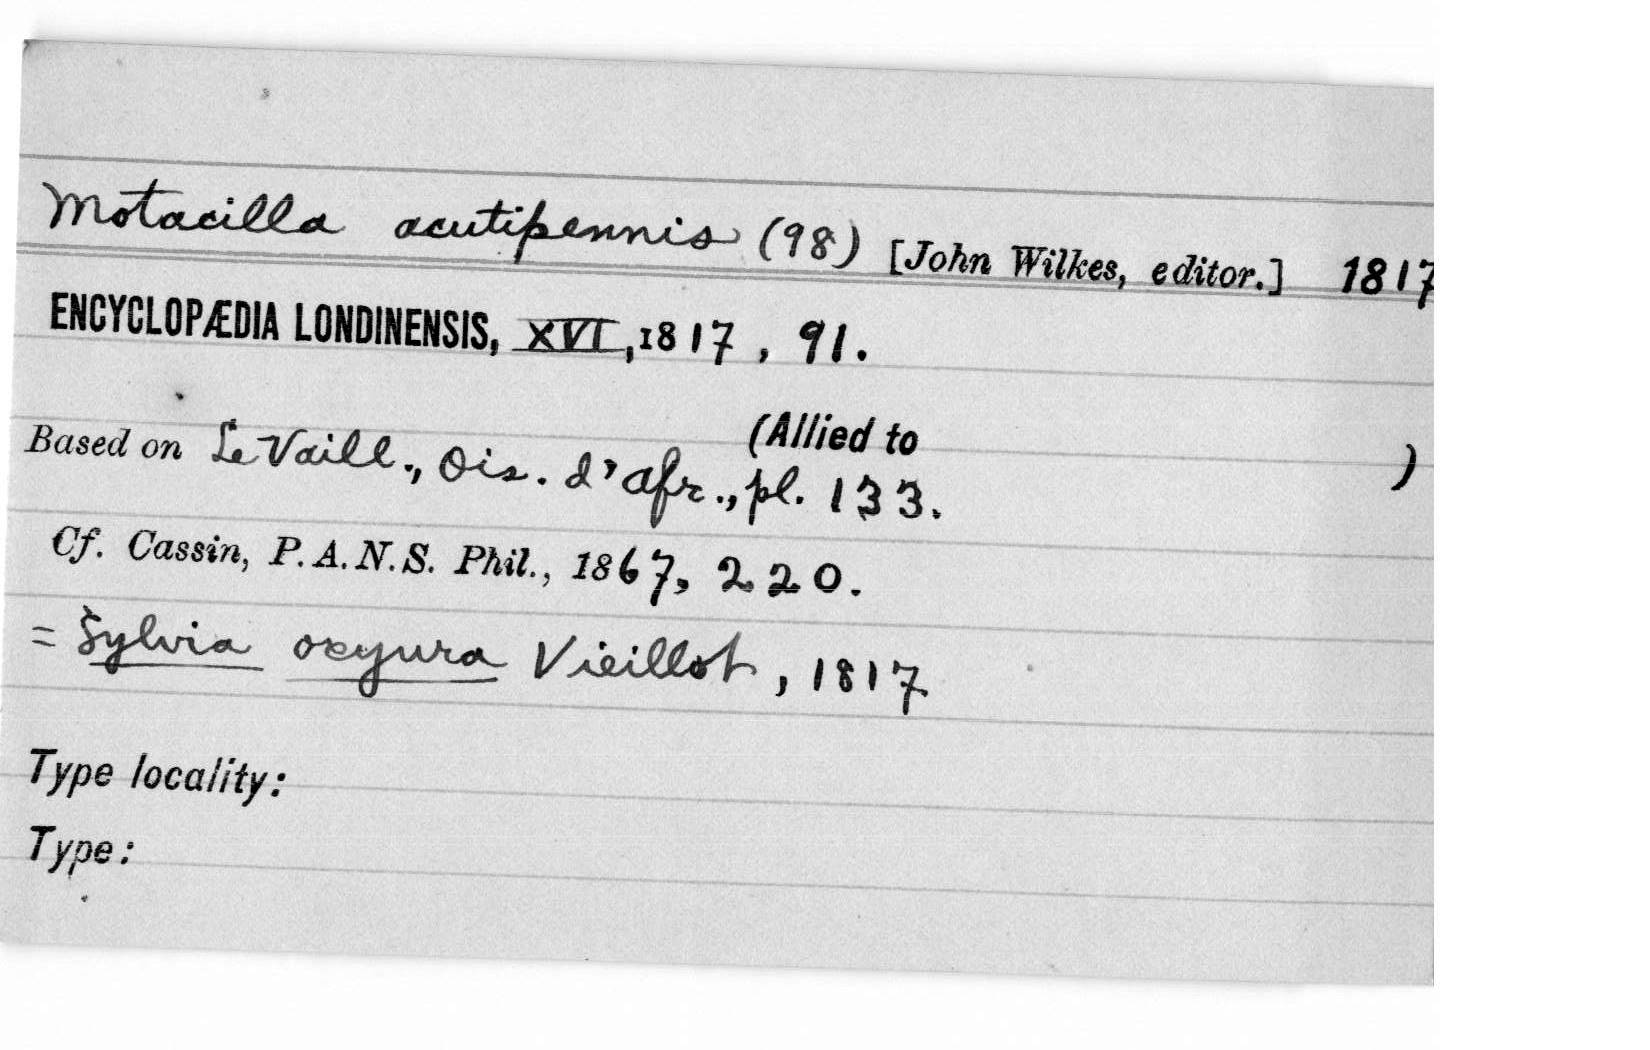 Motacilla acutipennis (98) [John Wilkes, editor.] 1817
ENCYCLOPÆDIA LONDINENSIS, XVI, 1817, 91.
(Allied to )
Based on Le Vaill., Ois. d'afr., pl. 133.
Cf. Cassin, P.A.N.S. Phil., 1867, 220.
= Sylvia oxyura Vieillot, 1817
Type locality:
Type: